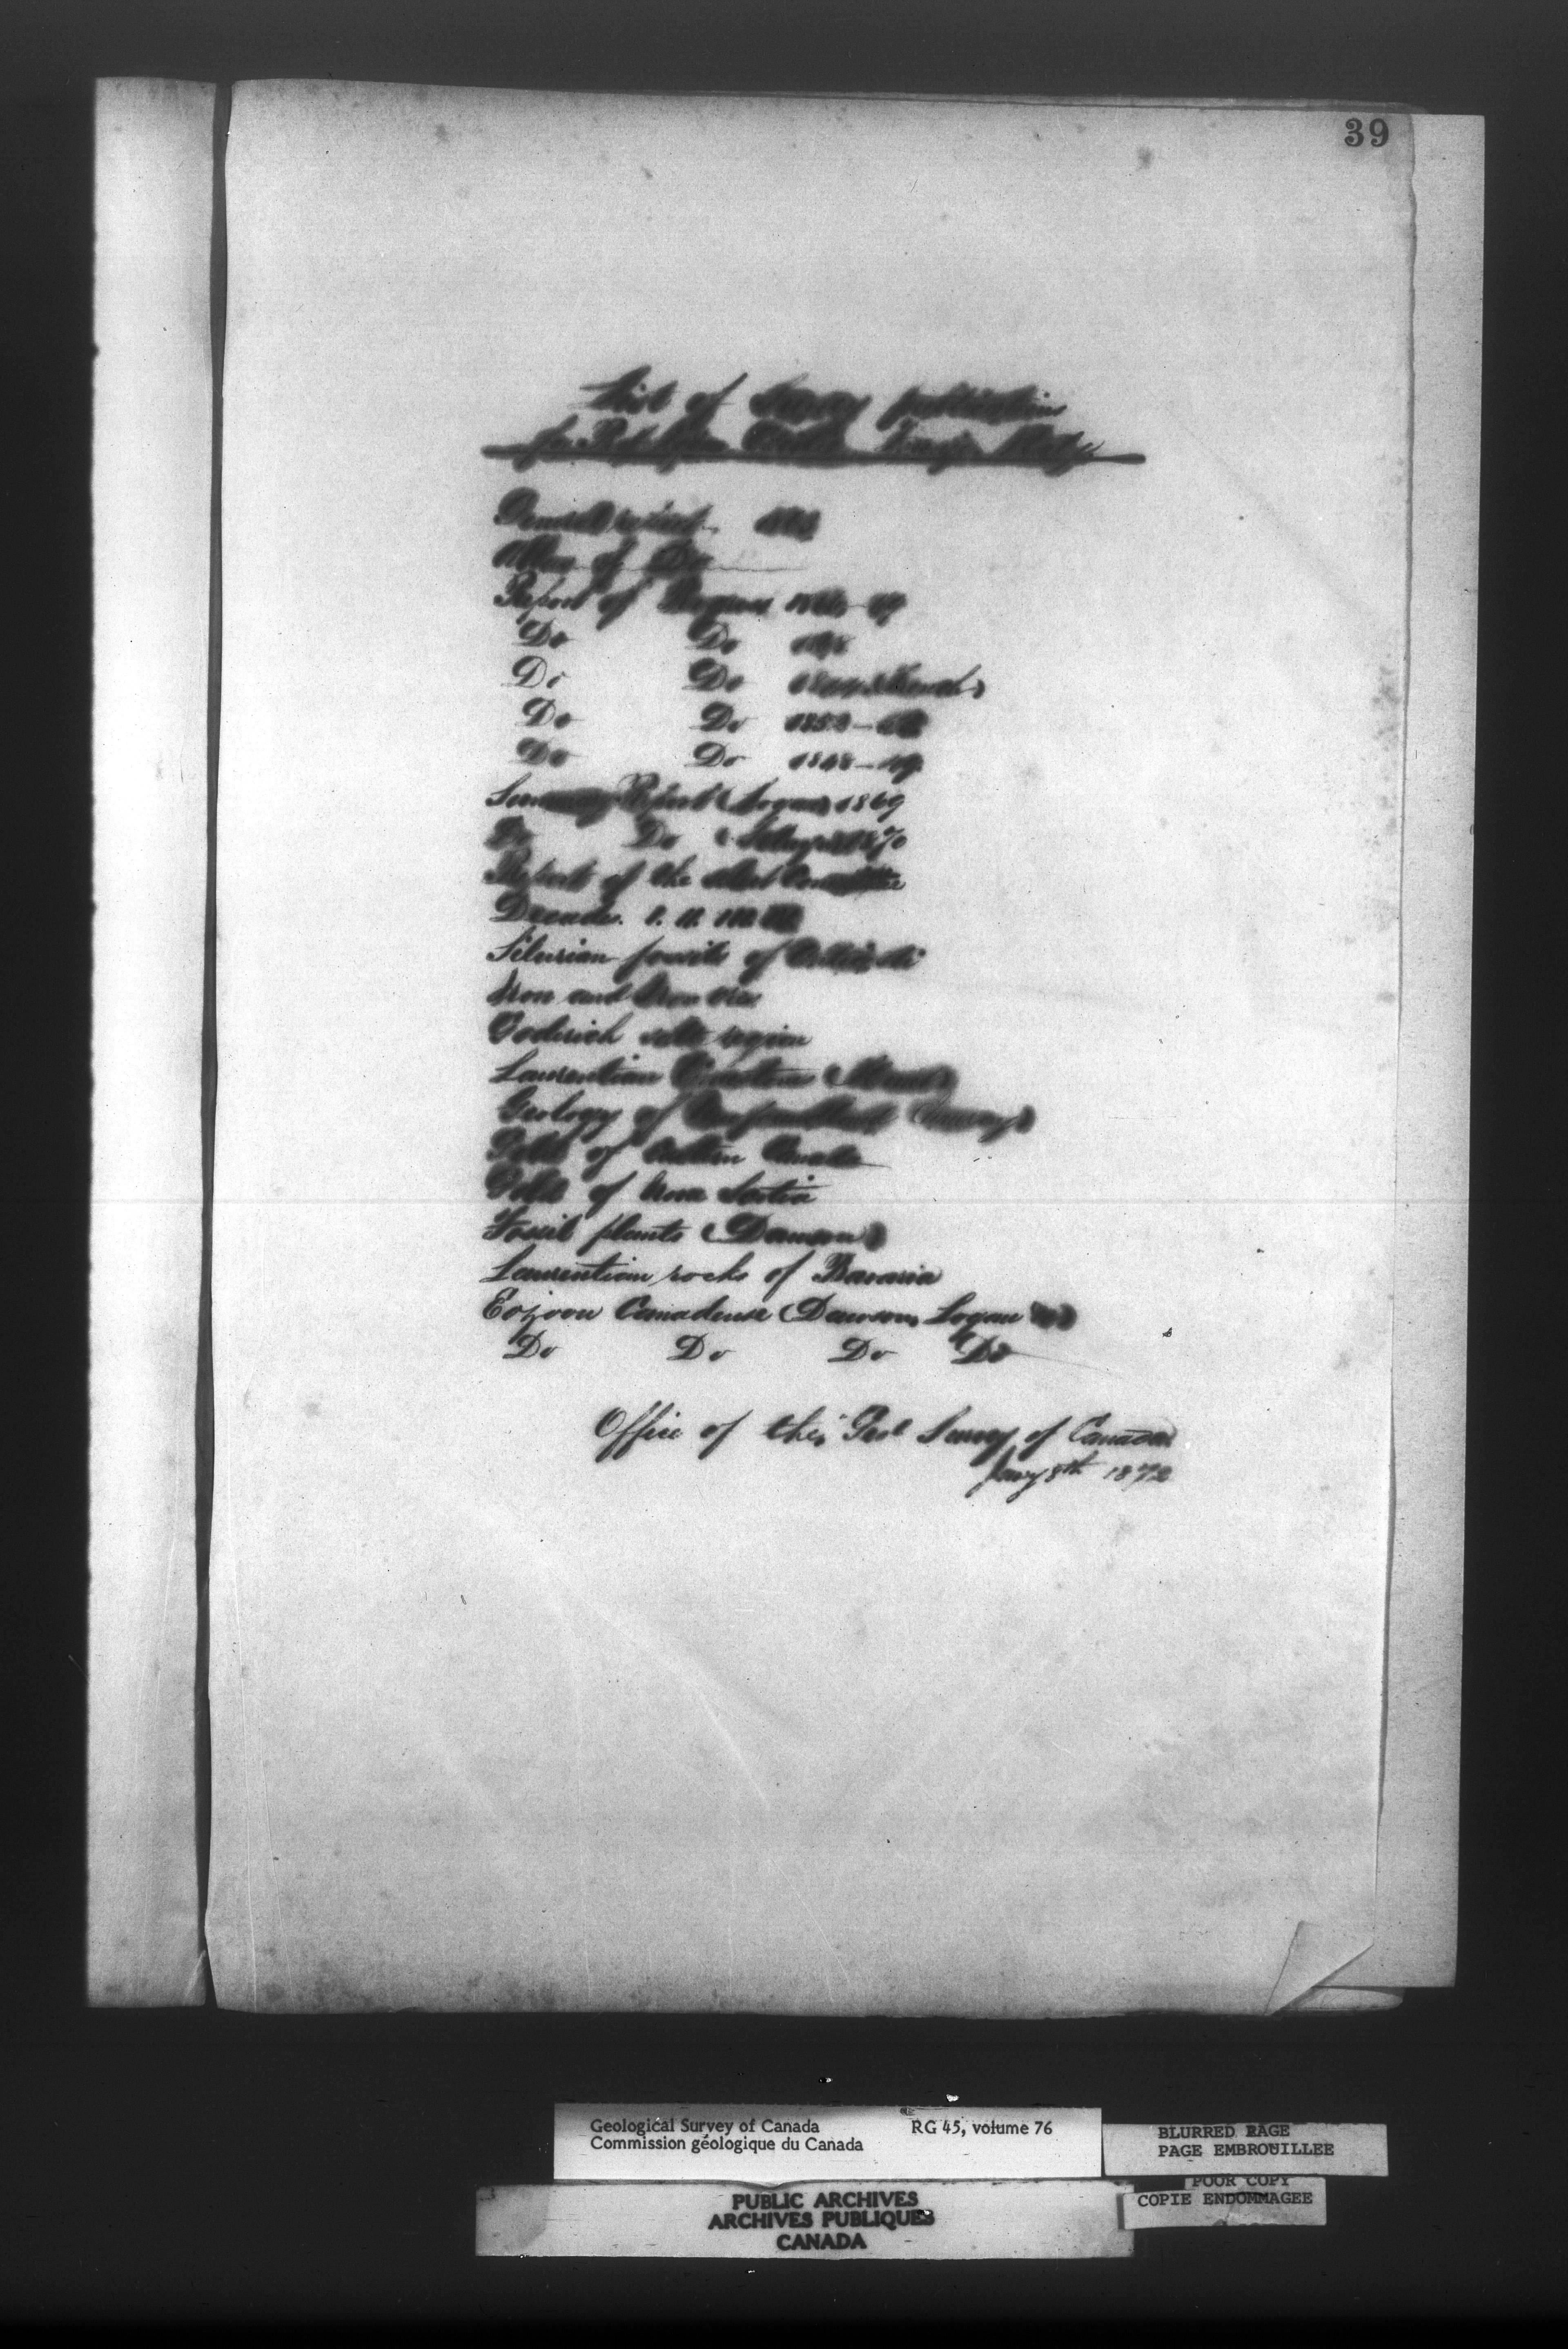 39
List of Survey publications
for
General report
Atlas of Do
Report of Progress 1866-69
Do Do
Do Do 1844 (French)
Do Do 1852-
Do Do 1848-49
Summary Report (Logan) 1869
Do Do (Selwyn) 1870
Report of the select Committee
Decades. I. II. III
Silurian fossils of Anticosti
Iron and Iron Ores
Goderich salt region
Laurentian
Geology of Newfoundland (Murray)
Gold of Canada
Gold of Nova Scotia
Fossil plants (Dawson)
Laurentian rocks of Bavaria
Eozoon Canadense (Dawson, Logan
Do Do Do Do
Office of the Geol Survey of Canada
Jany 8th 1872
Geological Survey of Canada RG 45, volume 76
Commission géologique du Canada
BLURRED PAGE
PAGE EMBROUILLEE
POOR COPY
COPIE ENDOMMAGEE
PUBLIC ARCHIVES
ARCHIVES PUBLIQUES
CANADA